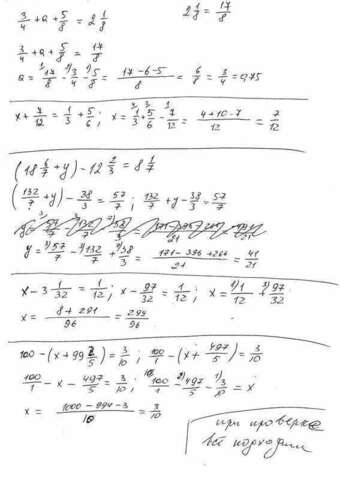 3/4 + a + 5/8 = 2 1/8
2 1/8 = 17/8
3/4 + a + 5/8 = 17/8
a = 17/8 - 3/4 - 5/8 = (17-6-5)/8 = 6/8 = 3/4 = 0,75
x + 7/12 = 1/3 + 5/6; x = 1/3 + 5/6 - 7/12 = (4+10-7)/12 = 7/12
(18 6/7 + y) - 12 2/3 = 8 1/7
(132/7 + y) - 38/3 = 57/7; 132/7 + y - 38/3 = 57/7
y = 57/7 - 132/7 + 38/3 = (171-396+266)/21 = 41/21
x - 3 1/32 = 1/12; x - 97/32 = 1/12; x = 1/12 + 97/32
x = (8+291)/96 = 299/96
100 - (x + 99 2/5) = 3/10; 100/1 - (x + 497/5) = 3/10
100/1 - x - 497/5 = 3/10; 100/1 - 497/5 - 3/10 = x
x = (1000-994-3)/10 = 3/10
при проверке
всё подходит